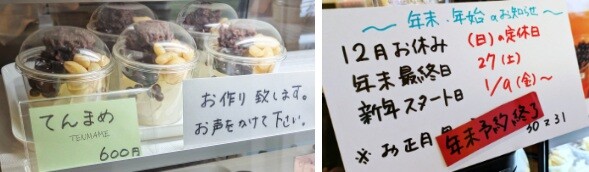 てんまめ
TENMAME
600円
お作り致します。
お声をかけて下さい。
〜年末年始のお知らせ〜
12月お休み (日)の定休日
年末最終日 27(土)
新年スタート日 1/9(金)〜
※お正月
年末予約終了
30 31